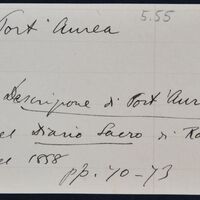 5.55
Port' Aurea
Descrizione di Port' Aur
el Diario Sacro di Ra
el 1858
pp. 70-73